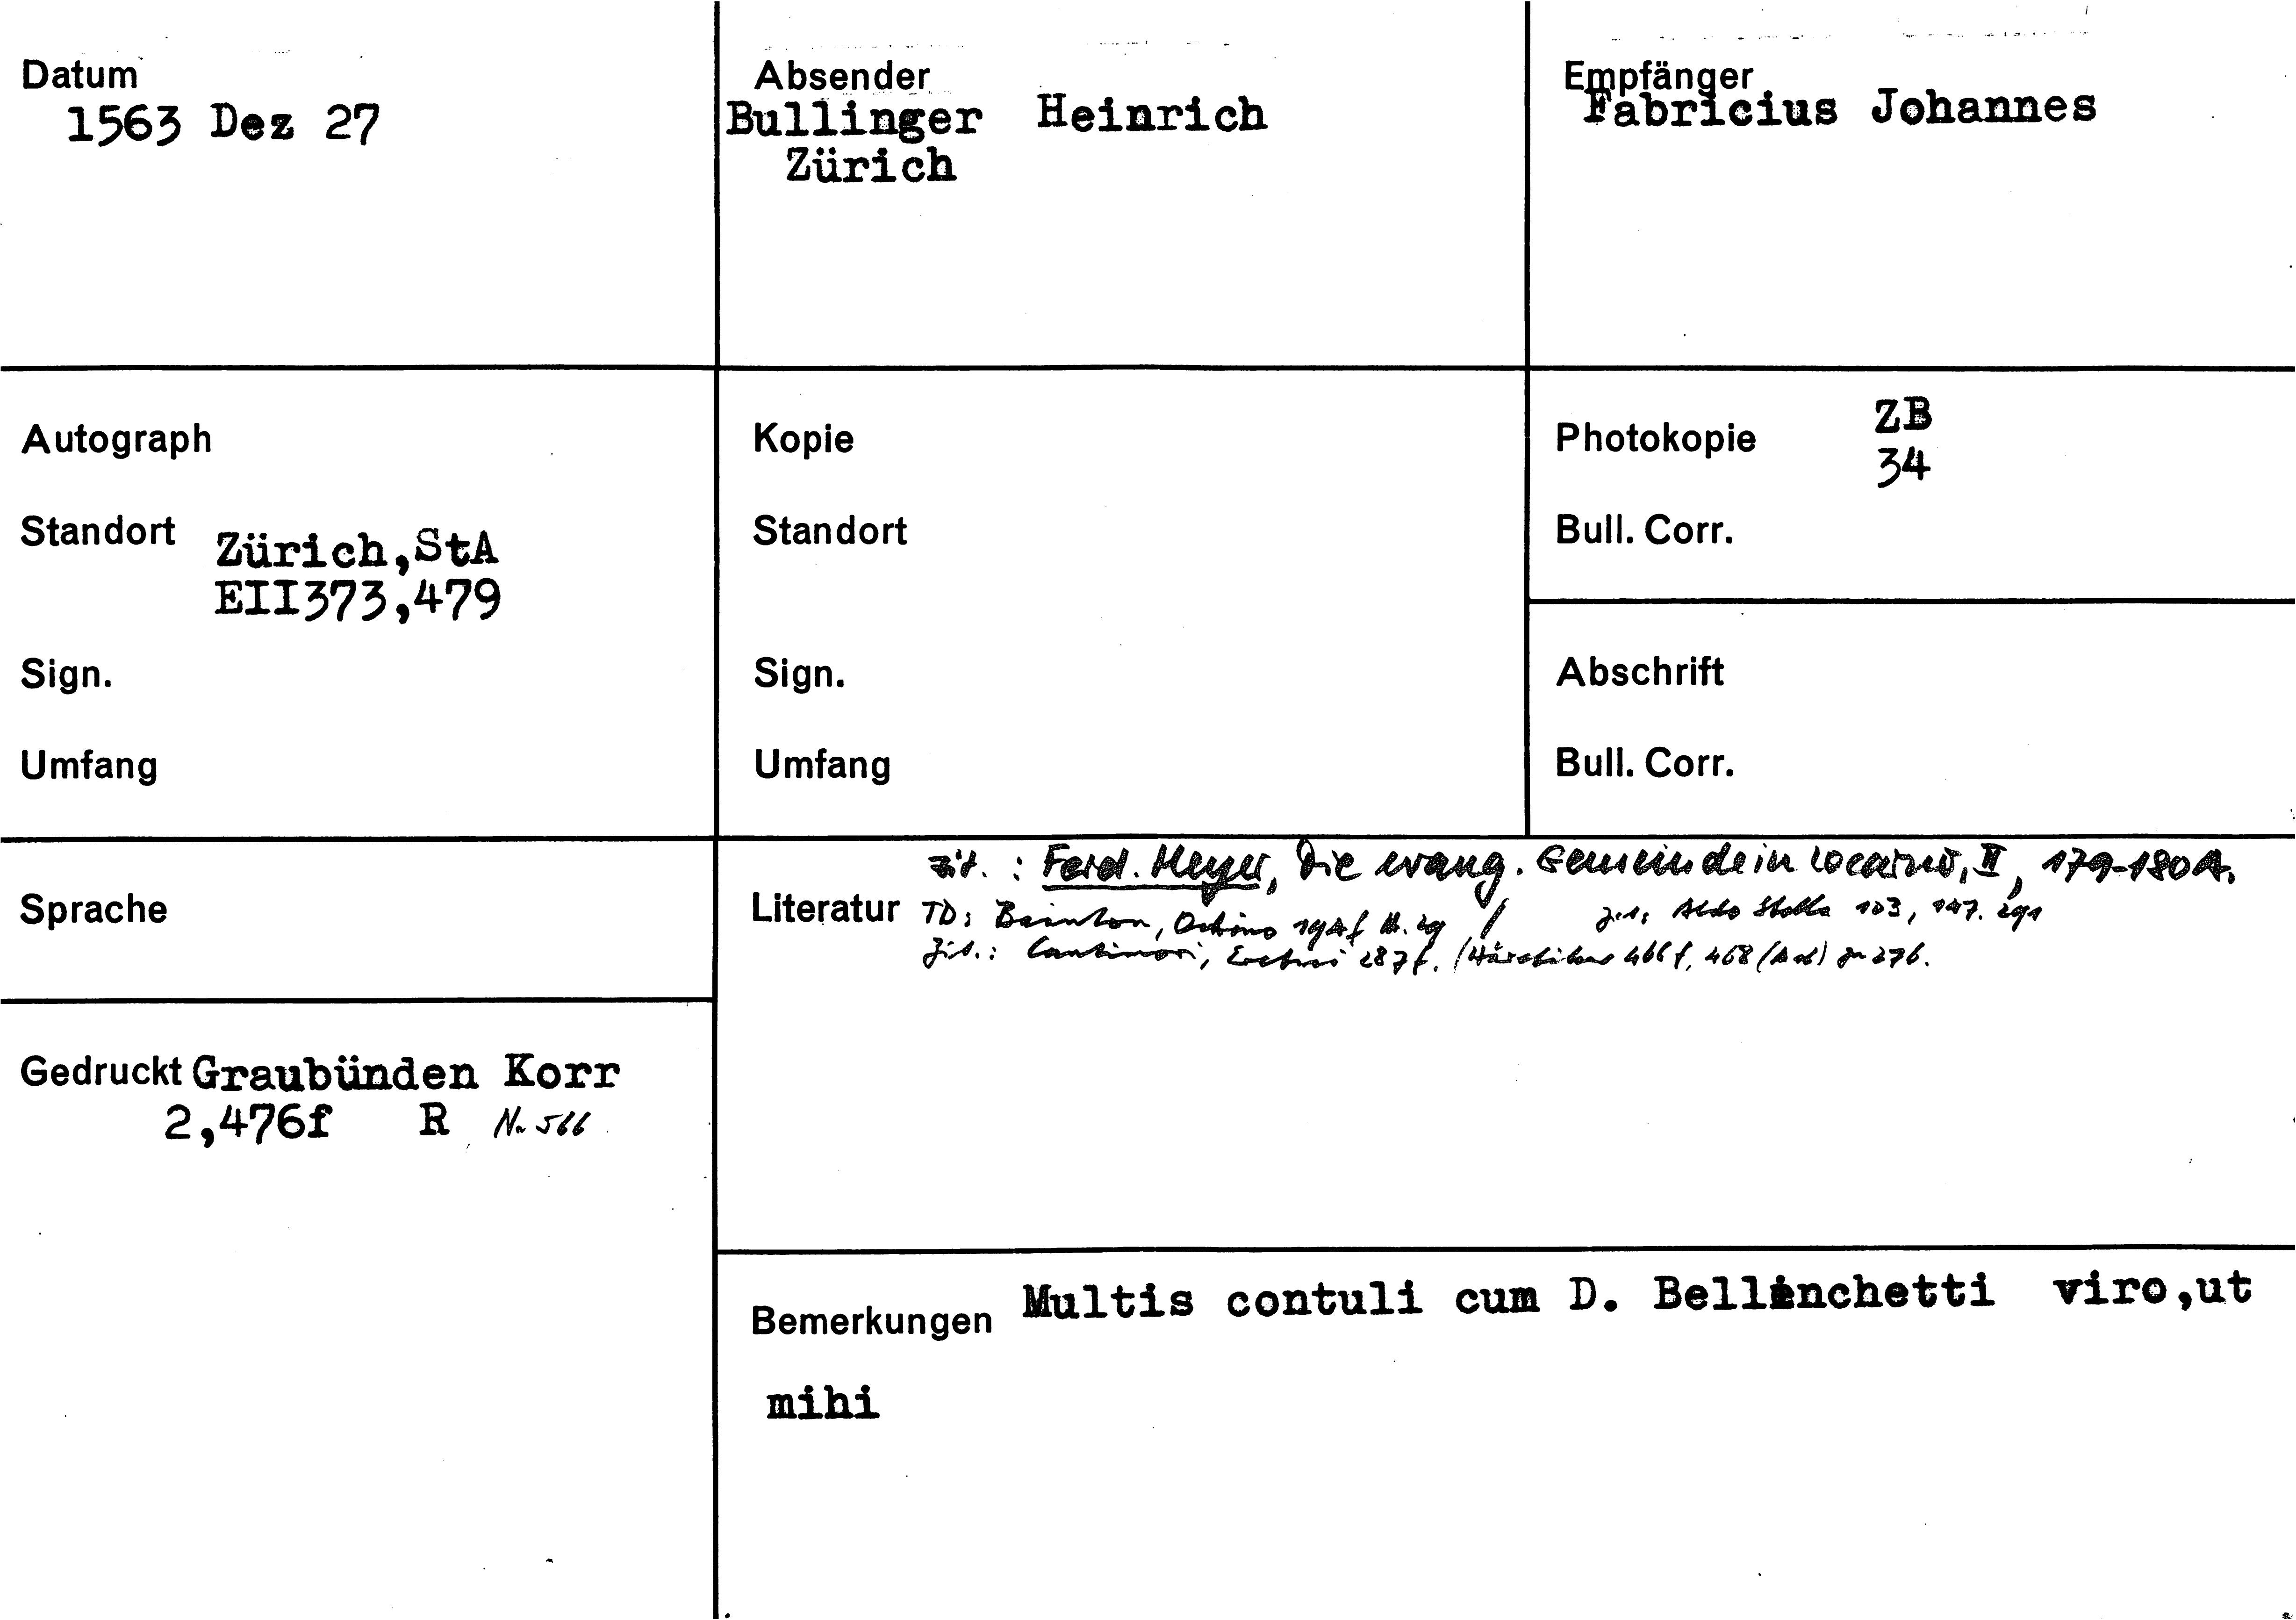 Datum
1563 Dez 27
Absender
Bullinger Heinrich
Zürich
Empfänger
Fabricius Johannes
Autograph
Standort Zürich,StA
EII373,479
Sign.
Umfang
Kopie
Standort
Sign.
Umfang
Photokopie ZB
34
Bull. Corr.
Abschrift
Bull. Corr.
Sprache
Gedruckt Graubünden Korr
2,476f R Nr. 566
zit. : Ferd. Meyer, Die evang. Gemeinde in Locarno, II, 179-180 A.
Literatur TD: Bainton, Ochino 194f A. 29 / zit. Aldo Stella 103, 147. 291
Zit.: Cantimori, Eretici 287f. (Häretiker 466f, 468 276.
Bemerkungen Multis contuli cum D. Bellinchetti viro,ut
mihi